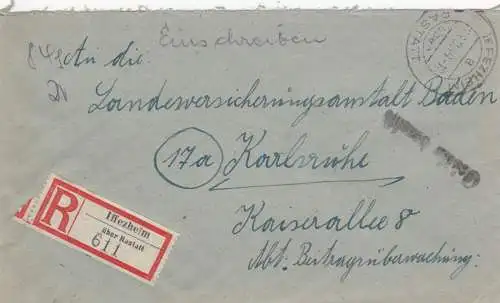 Einschreiben
An die
Landesversicherungsanstalt Baden
17a Karlsruhe
Kaiserallee 8
Abt. Beitragsüberwachung
R
Iffezheim
über Rastatt
611
IFFEZHEIM
RASTATT